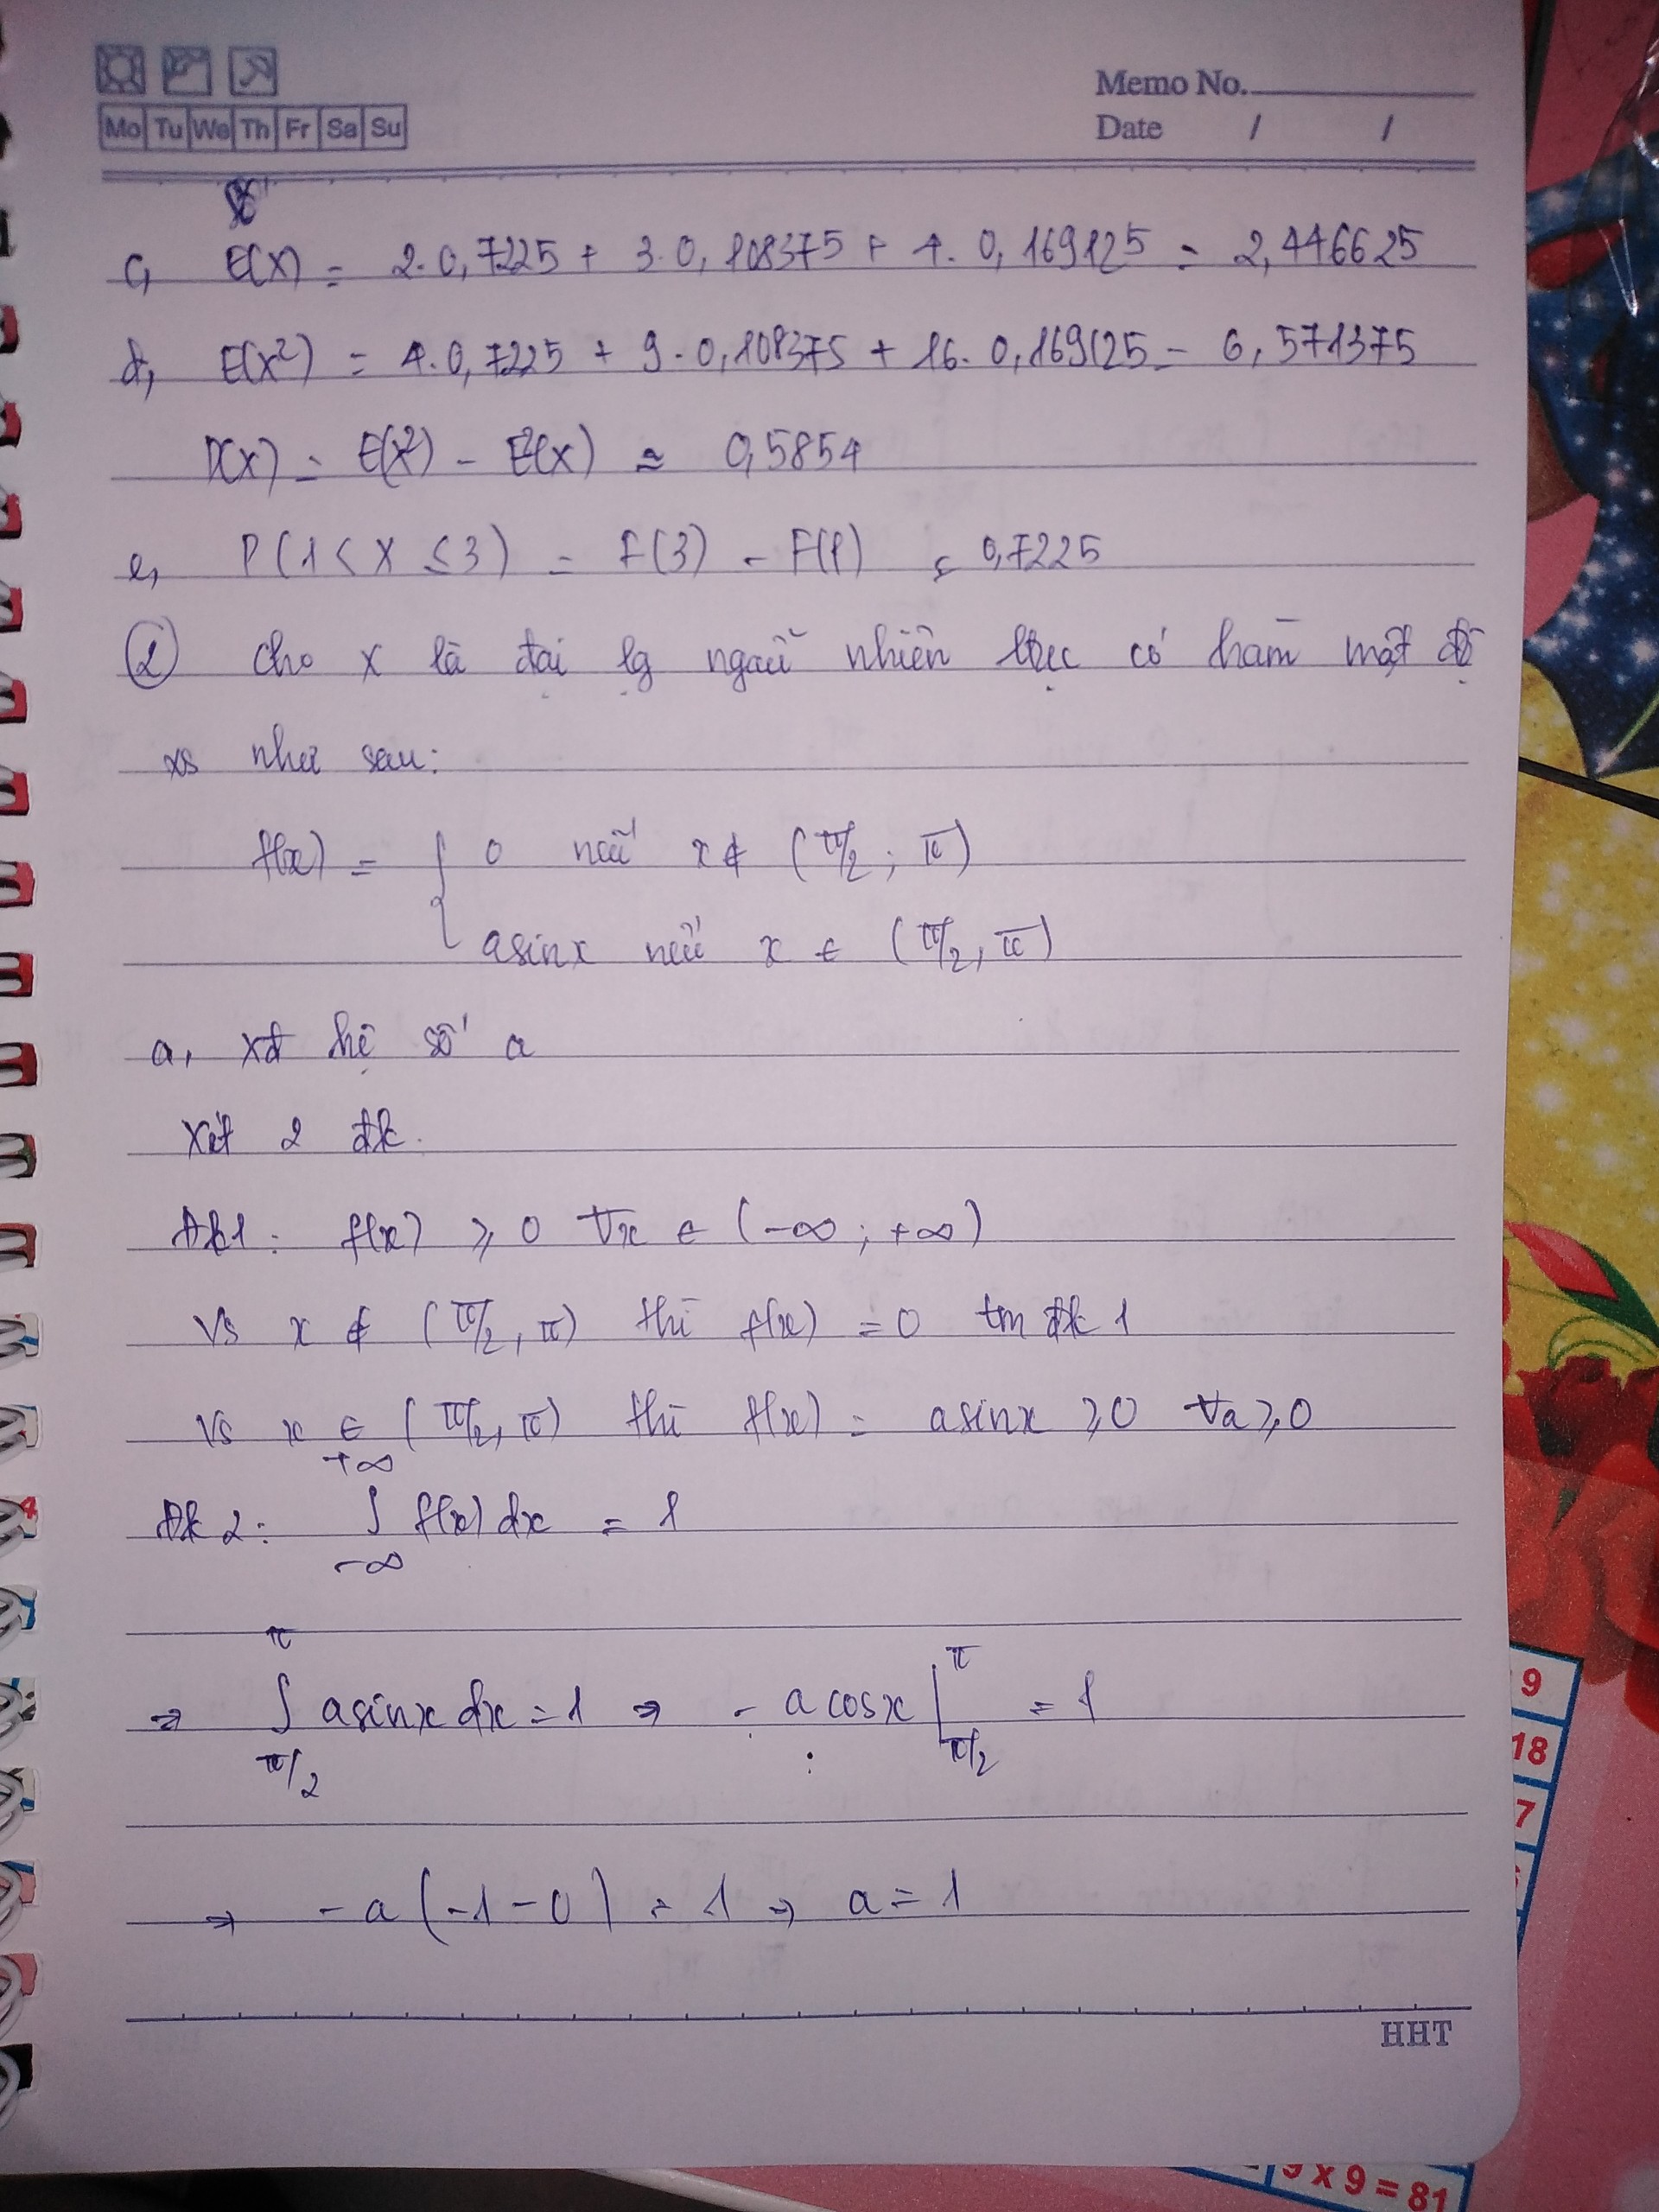 Mo Tu We Th Fr Sa Su
Memo No.
Date / /
c, E(X) = 2.0,7225 + 3.0,108375 + 4.0,169125 = 2,446625
d, E(X²) = 4.0,7225 + 9.0,108375 + 16.0,169125 = 6,571375
D(X) = E(X²) - E²(X) ≈ 0,5854
e, P(1 < X ≤ 3) = F(3) - F(1) = 0,7225
② Cho X là đại lg ngẫu nhiên ltục có hàm mật độ
xs như sau:
f(x) = { 0 nếu x ∉ (π/2 ; π)
asinx nếu x ∈ (π/2, π)
a, xđ hệ số a
Xét 2 đk.
Đk1: f(x) ≥ 0 ∀x ∈ (-∞ ; +∞)
Vs x ∉ (π/2, π) thì f(x) = 0 tm đk 1
Vs x ∈ (π/2, π) thì f(x) = asinx ≥ 0 ∀a ≥ 0
Đk 2: ∫_{-∞}^{+∞} f(x) dx = 1
⇒ ∫_{π/2}^{π} asinx dx = 1 ⇒ - a cosx |_{π/2}^{π} = 1
⇒ -a(-1-0) = 1 ⇒ a = 1
HHT
9
18
7
9 x 9 = 81